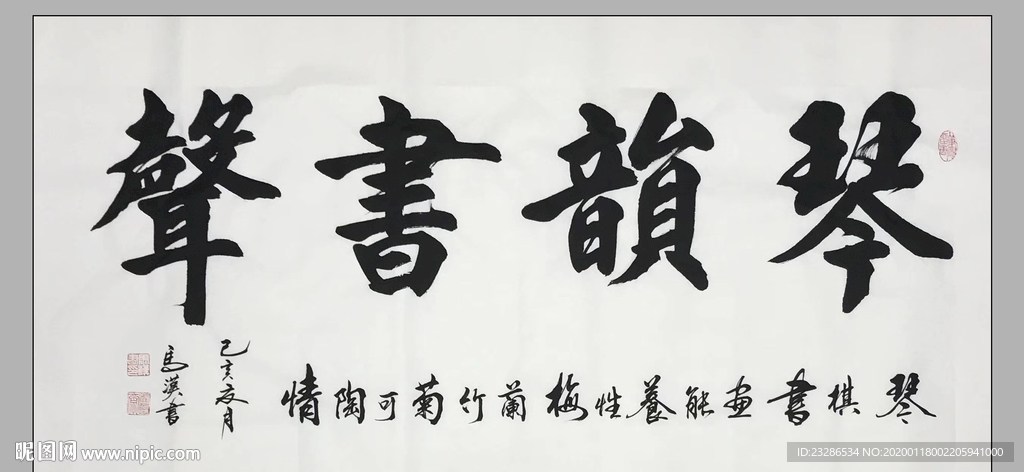 琴韻書聲
琴棋書画能養性梅蘭竹菊可陶情
己亥夏月
馬漢書
昵图网 www.nipic.com
ID:23286534 NO:20200118002205941000